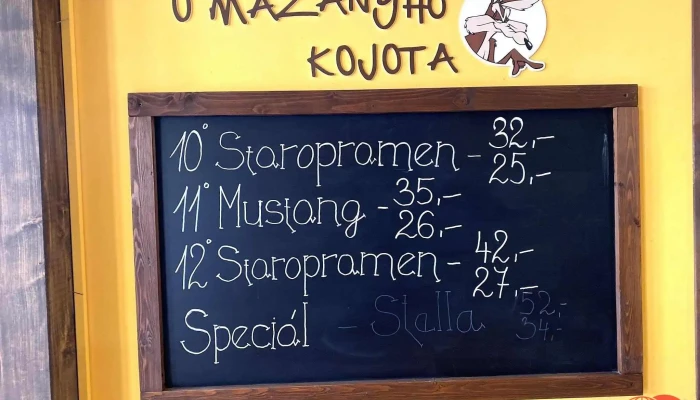 U MAZANÝHO
KOJOTA
10° Staropramen - 32,-
25,-
11° Mustang - 35,-
26,-
12° Staropramen - 42,-
27,-
Speciál - Stalla 52,-
34,-